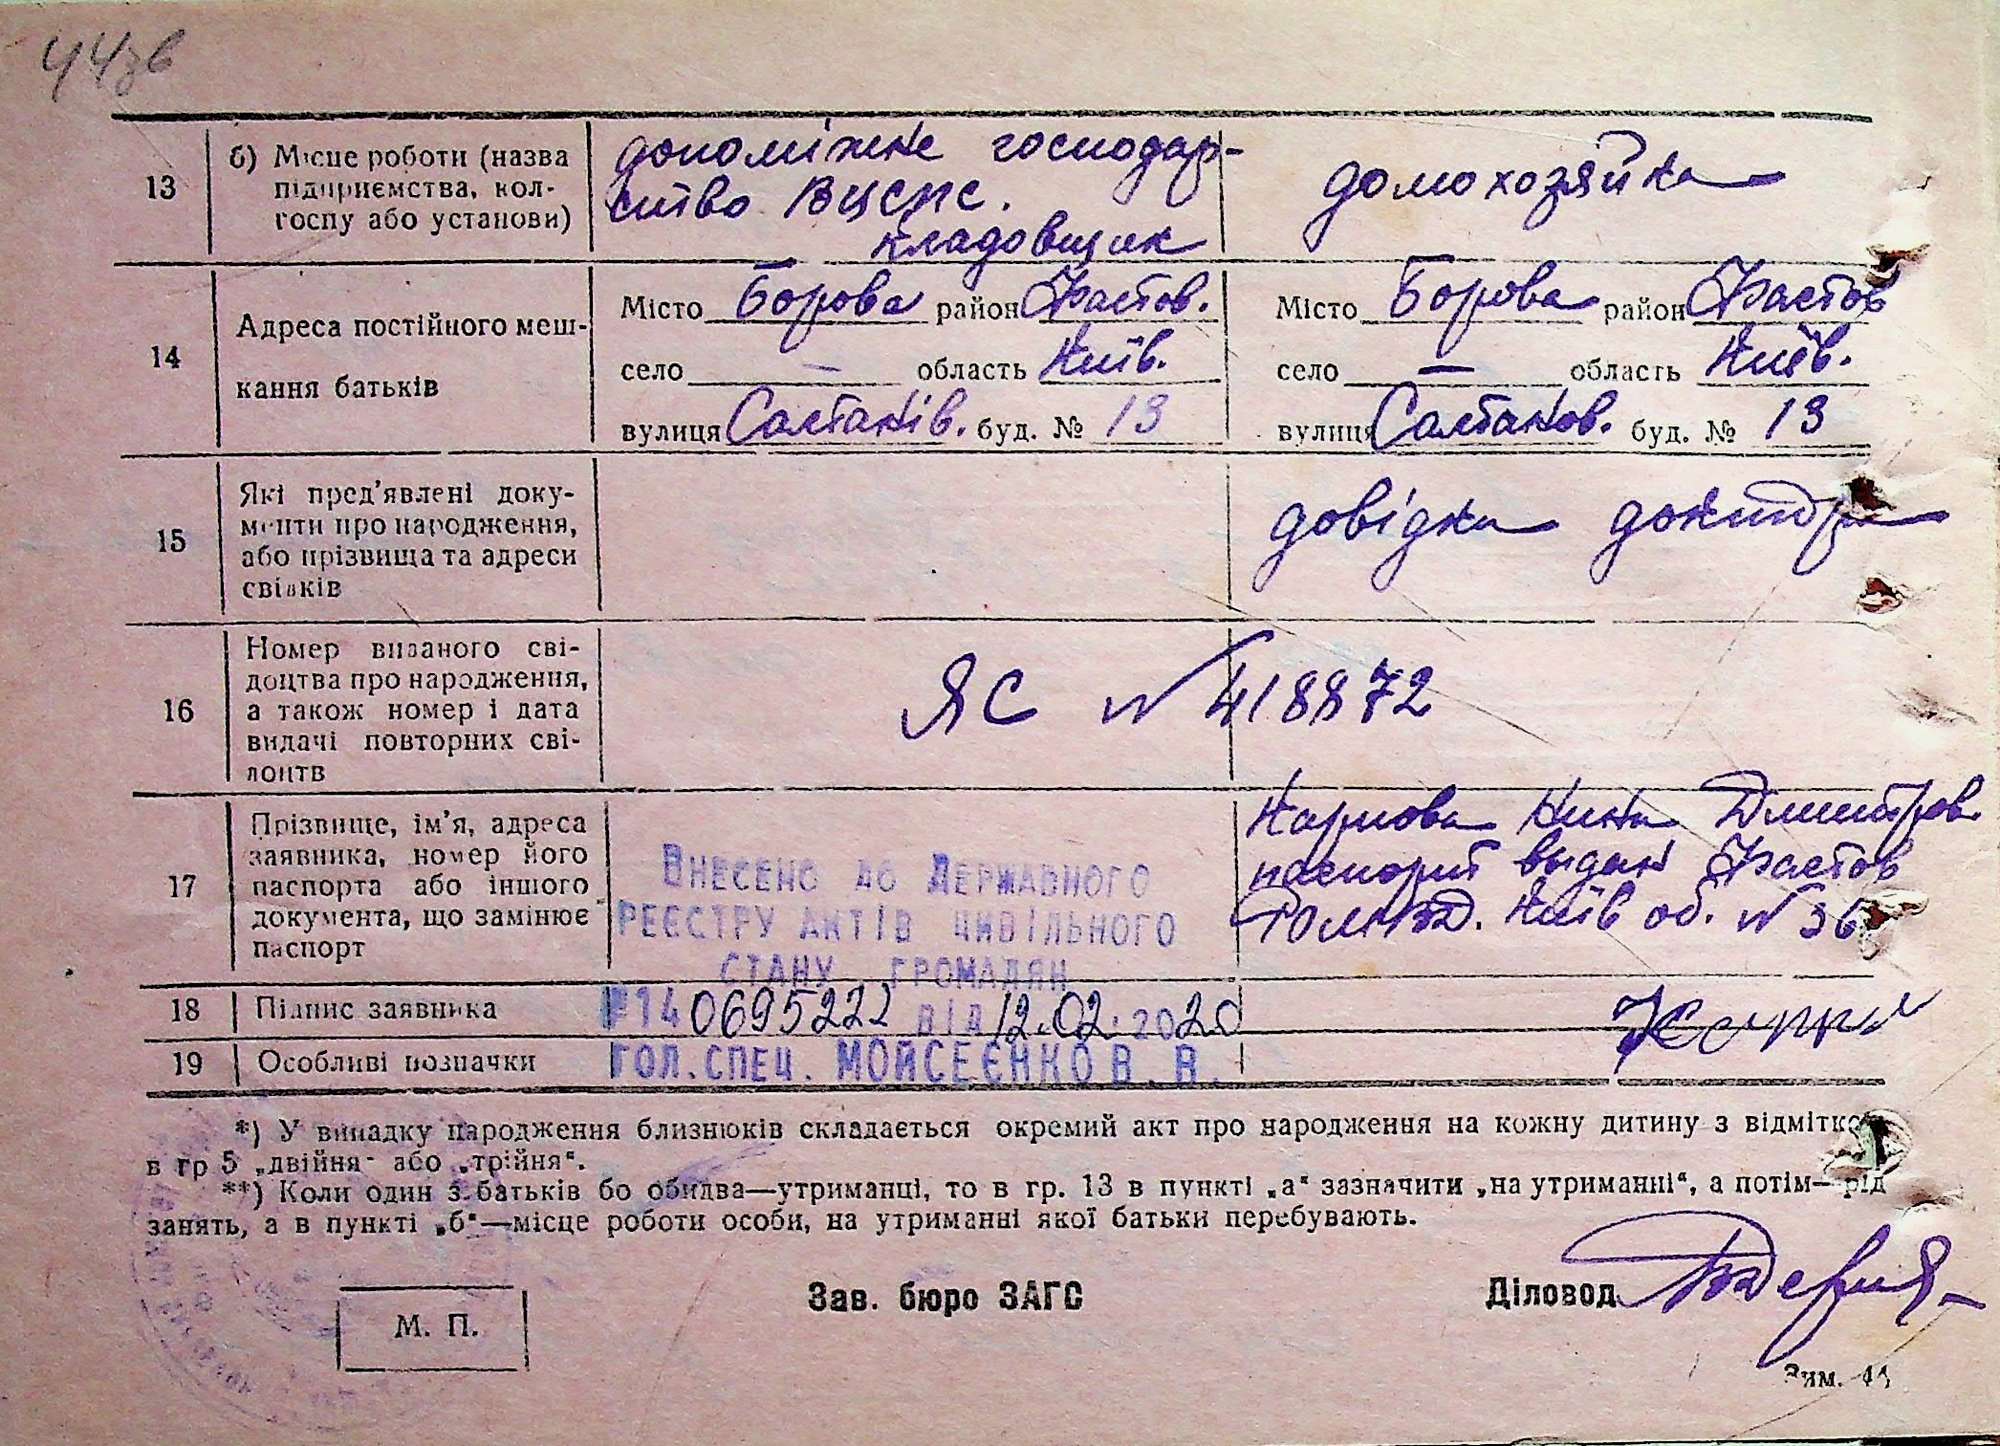 44зв
13
б) Місце роботи (назва
підприємства, кол-
госпу або установи)
допоміжне господар-
ство ВЦСПС.
кладовщик
домохозяйка
14
Адреса постійного меш-
кання батьків
Місто Борова район Фастов.
село — область Київ.
вулиця Салтанів. буд. № 13
Місто Борова район Фастов
село — область Київ.
вулиця Салтанов. буд. № 13
15
Які пред'явлені доку-
менти про народження,
або прізвища та адреси
свідків
довідка
16
Номер виданого сві-
доцтва про народження,
а також номер і дата
видачі повторних сві-
доцтв
ЯС № 418872
17
Прізвище, ім'я, адреса
заявника, номер його
паспорта або іншого
документа, що замінює
паспорт
Внесено до Державного
реєстру актів цивільного
стану громадян
Карпова Нина Дмитров.
паспорт выдан Фастов
Київ об. № 36
18
Підпис заявника
№140695222 від 12.02.2020
19
Особливі позначки
ГОЛ.СПЕЦ. МОЙСЕЄНКО В. В.
*) У випадку народження близнюків складається окремий акт про народження на кожну дитину з відміткою
в гр 5 „двійня" або „трійня".
**) Коли один з батьків бо обидва—утриманці, то в гр. 13 в пункті „а" зазначити „на утриманні", а потім—рід
занять, а в пункті „б"—місце роботи особи, на утриманні якої батьки перебувають.
М. П.
Зав. бюро ЗАГС
Діловод
Зим. 44